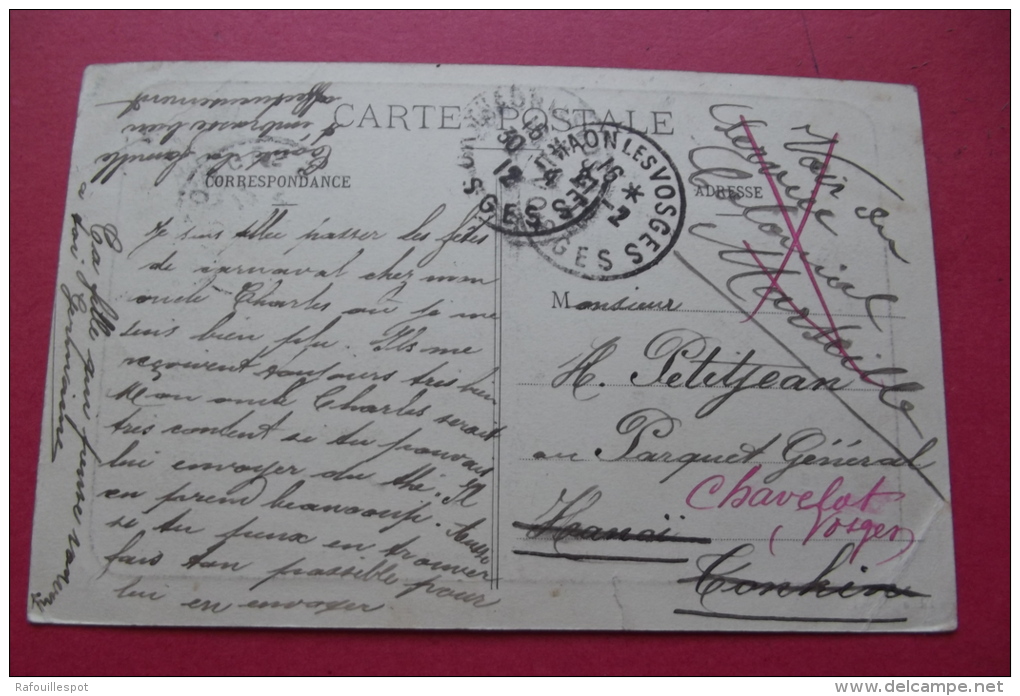 CARTE POSTALE
CORRESPONDANCE
ADRESSE
Je suis allée passer les fêtes
de carnaval chez mon
oncle Charles où je me
suis bien plu. Ils me
reçoivent toujours très bien
Mon oncle Charles serait
très content si tu pouvais
lui envoyer du thé. Il
en prend beaucoup. Aussi
si tu peux en trouver
fais ton possible pour
lui en envoyer
Ta fille qui pense souvent
à toi Germaine
Toute la famille
t'embrasse bien
affectueusement
RAON LES VOSGES
VOSGES
Voir au
Service
Colonial
Marseille
Monsieur
H. Petitjean
au Parquet Général
Hanoï
Tonkin
Chavelot
(Vosges)
Rafouillespot
www.delcampe.net